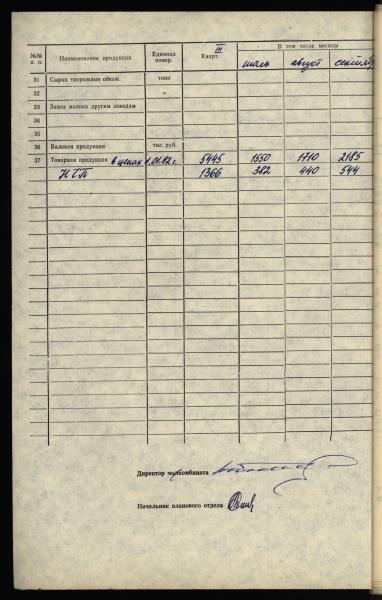 №№ п. п. Наименование продукции Единица измер. III Кварт. В том числе месяцы
июль август сентябр
31 Сырки творожные обезж. тонн
32 "
33 Завоз молока другим заводам
34
35
36 Валовая продукция тыс. руб.
37 Товарная продукция в ценах 1.01.82 г. 5445 1550 1710 2185
НЧП 1366 382 440 544
Директор молкомбината
Начальник планового отдела